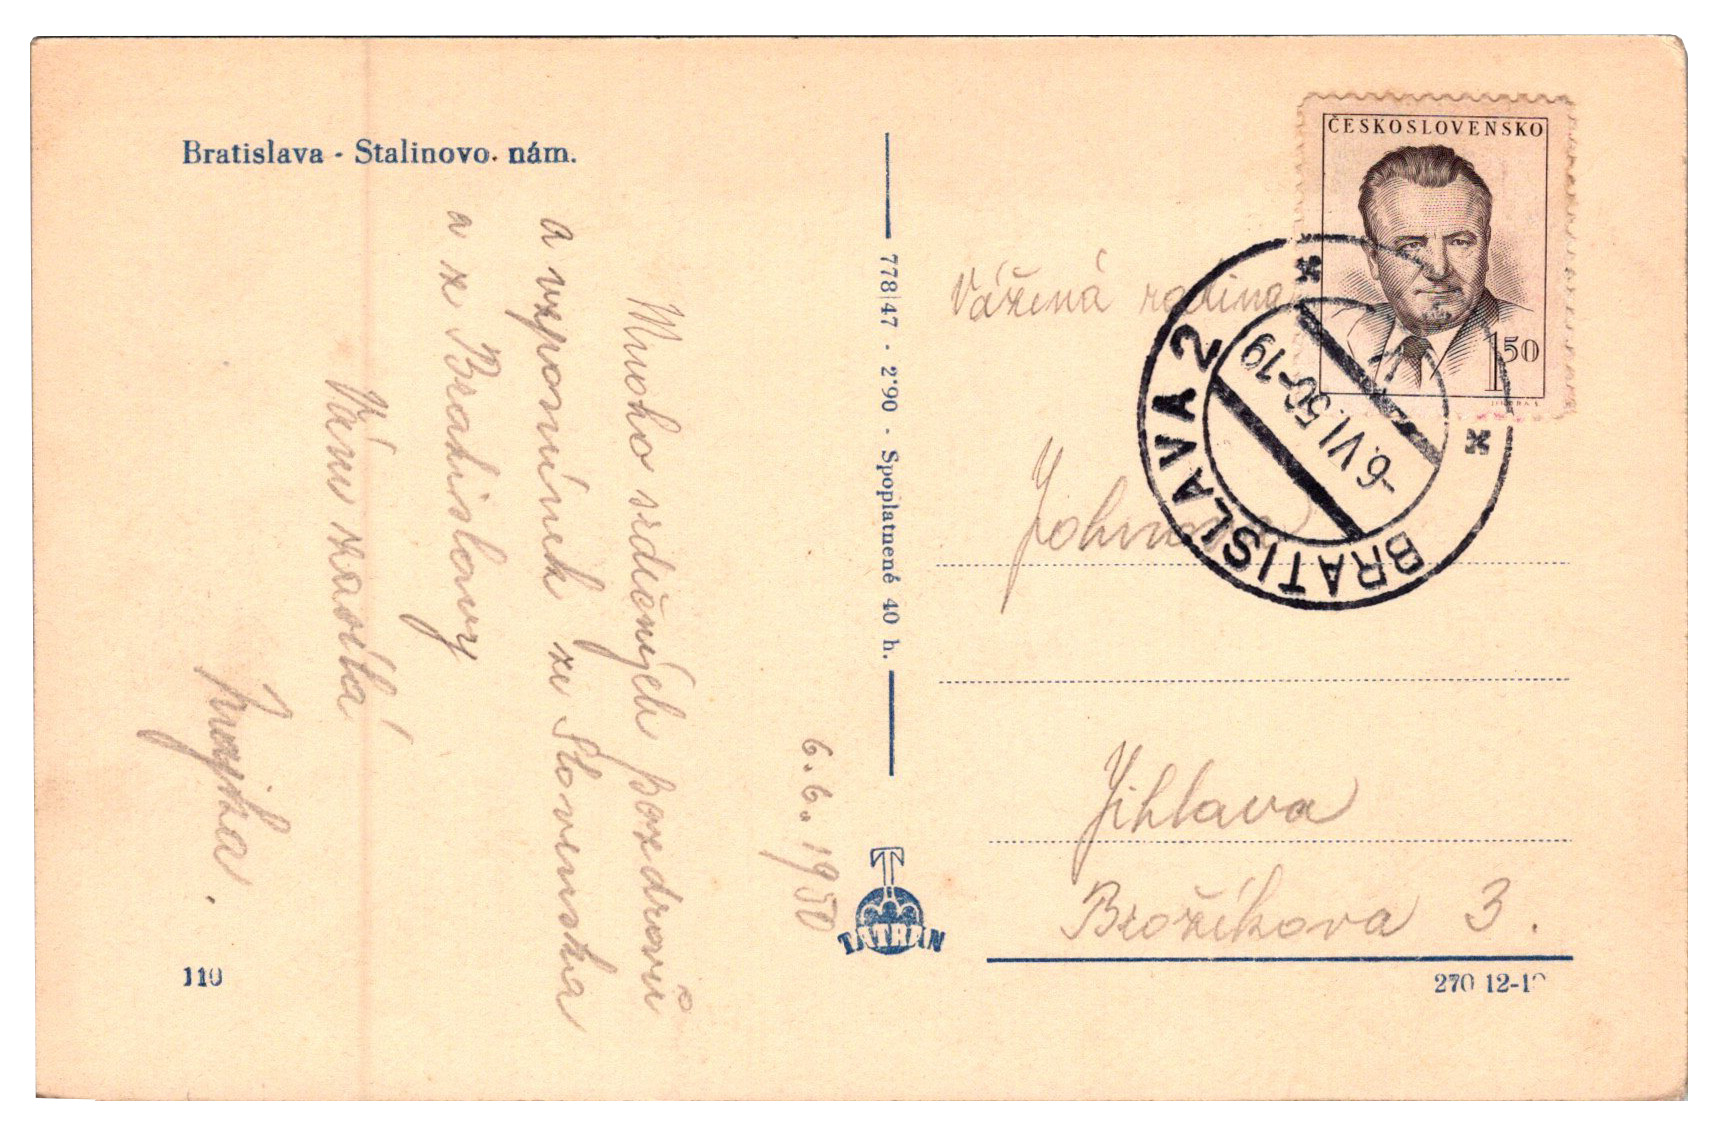 Bratislava - Stalinovo nám.
6.6.1950
Mnoho srdečných pozdravů
a vzpomínek ze Slovenska
a z Bratislavy
Vám zasílá
110
778|47 - 2'90 - Spoplatnené 40 h.
TATRAN
ČESKOSLOVENSKO
150
BRATISLAVA 2
-6.VI.50-19
Vážená rodina
Jihlava
Brožíkova 3.
270 12-1